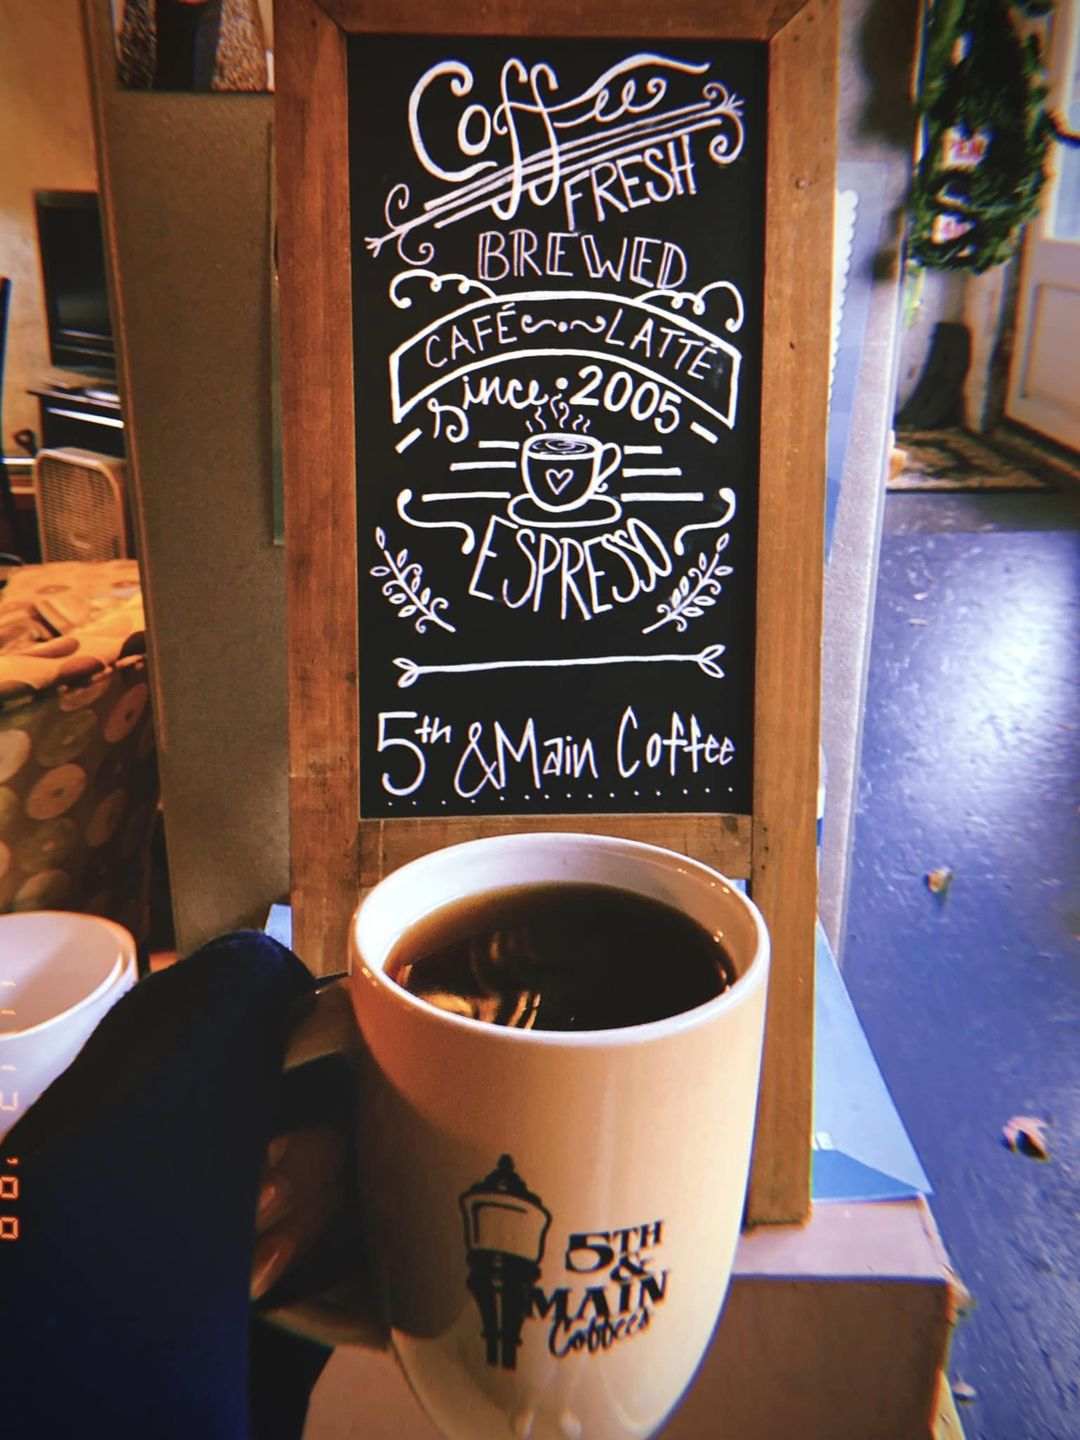 Coffee
FRESH
BREWED
CAFÉ LATTÉ
Since 2005
ESPRESSO
5th & Main Coffee
5TH
&
MAIN
Coffees